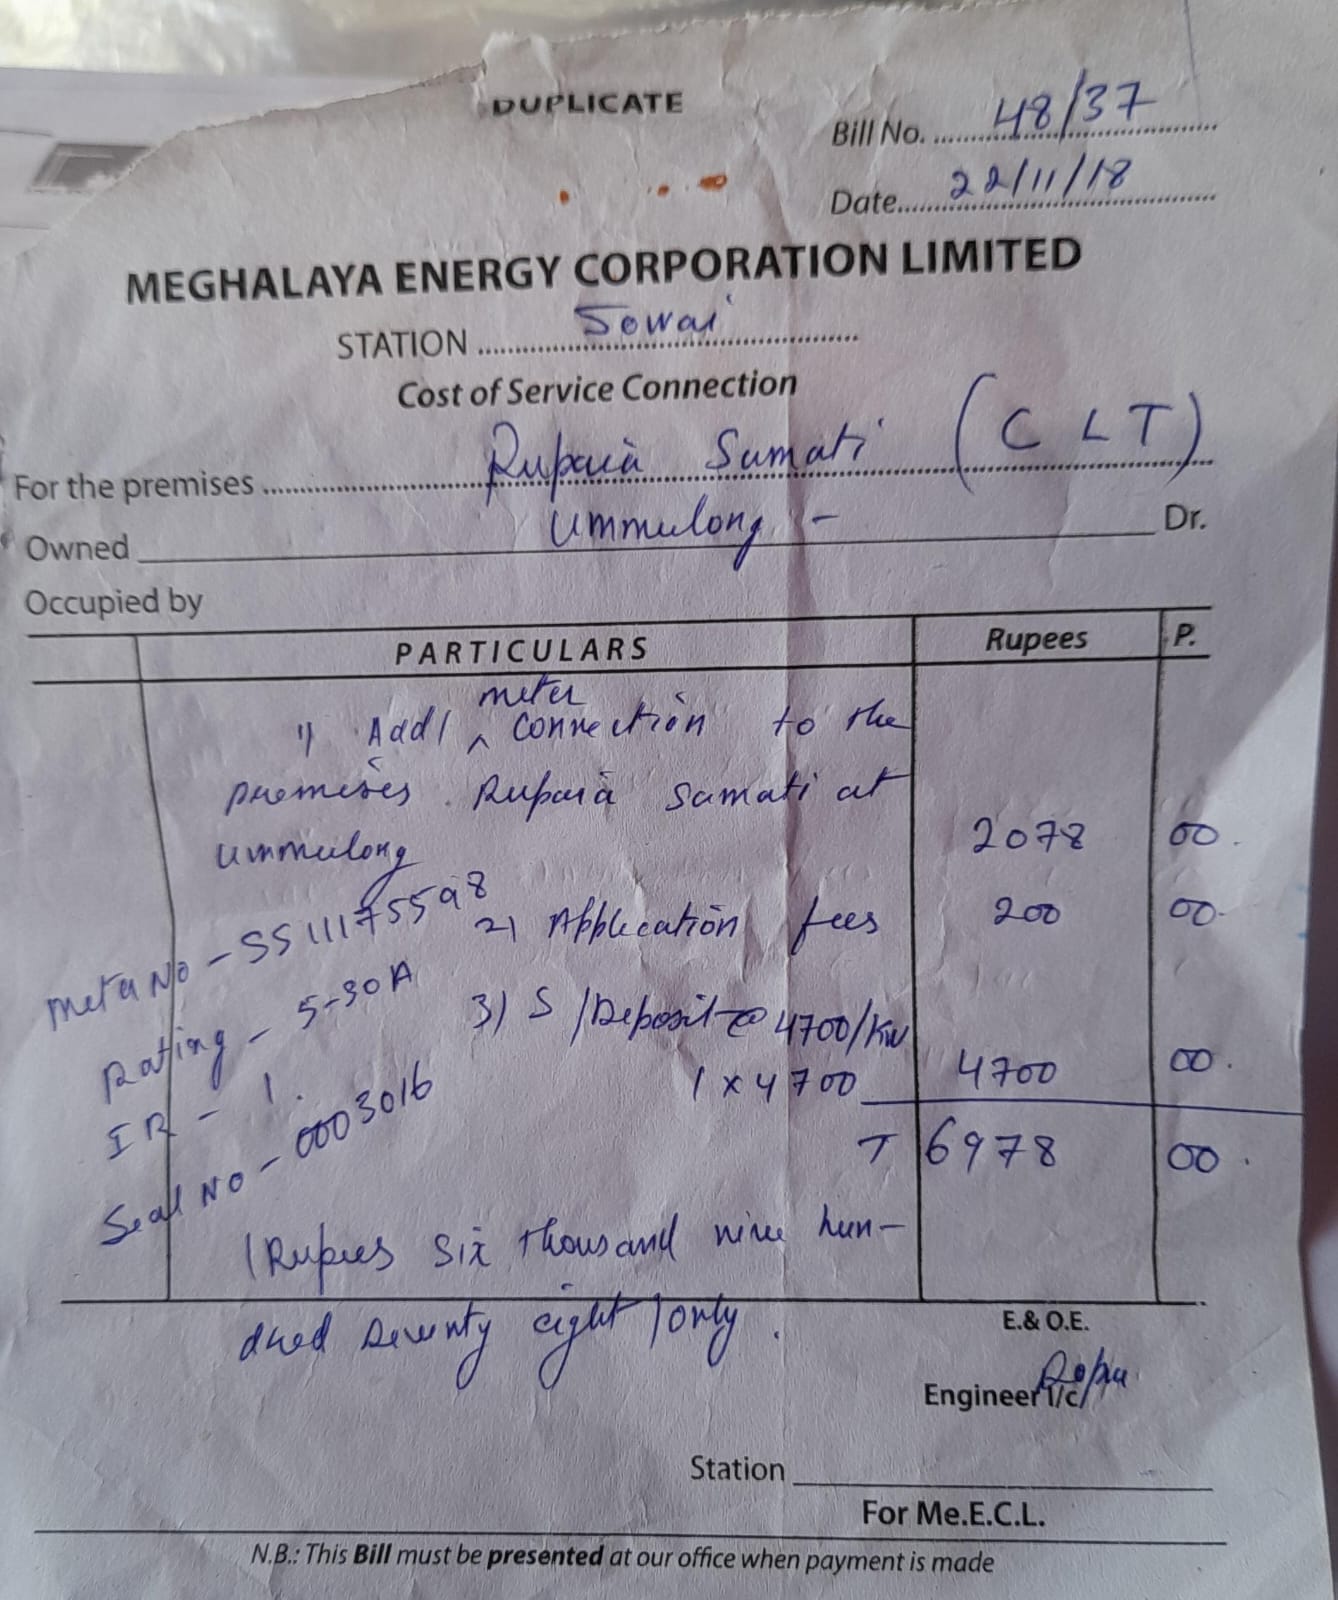 DUPLICATE
Bill No. 48/37
Date 22/11/18
MEGHALAYA ENERGY CORPORATION LIMITED
STATION Jowai
Cost of Service Connection
For the premises Rupaia Sumati (CLT)
Owned Ummulong - Dr.
Occupied by
PARTICULARS Rupees P.
meter
1) Addl ^ Connection to the
premises Rupaia Sumati at
Ummulong 2078 00
2) Application fees 200 00
3) S/Deposit @ 4700/Kw
1 x 4700 4700 00
T 6978 00
Meter No - SS11175598
Rating - 5-30A
IR - 1.
Seal No - 0003016
(Rupees Six thousand nine hun-
dred seventy eight) only.
E.& O.E.
Engineer I/c
Station
For Me.E.C.L.
N.B.: This Bill must be presented at our office when payment is made